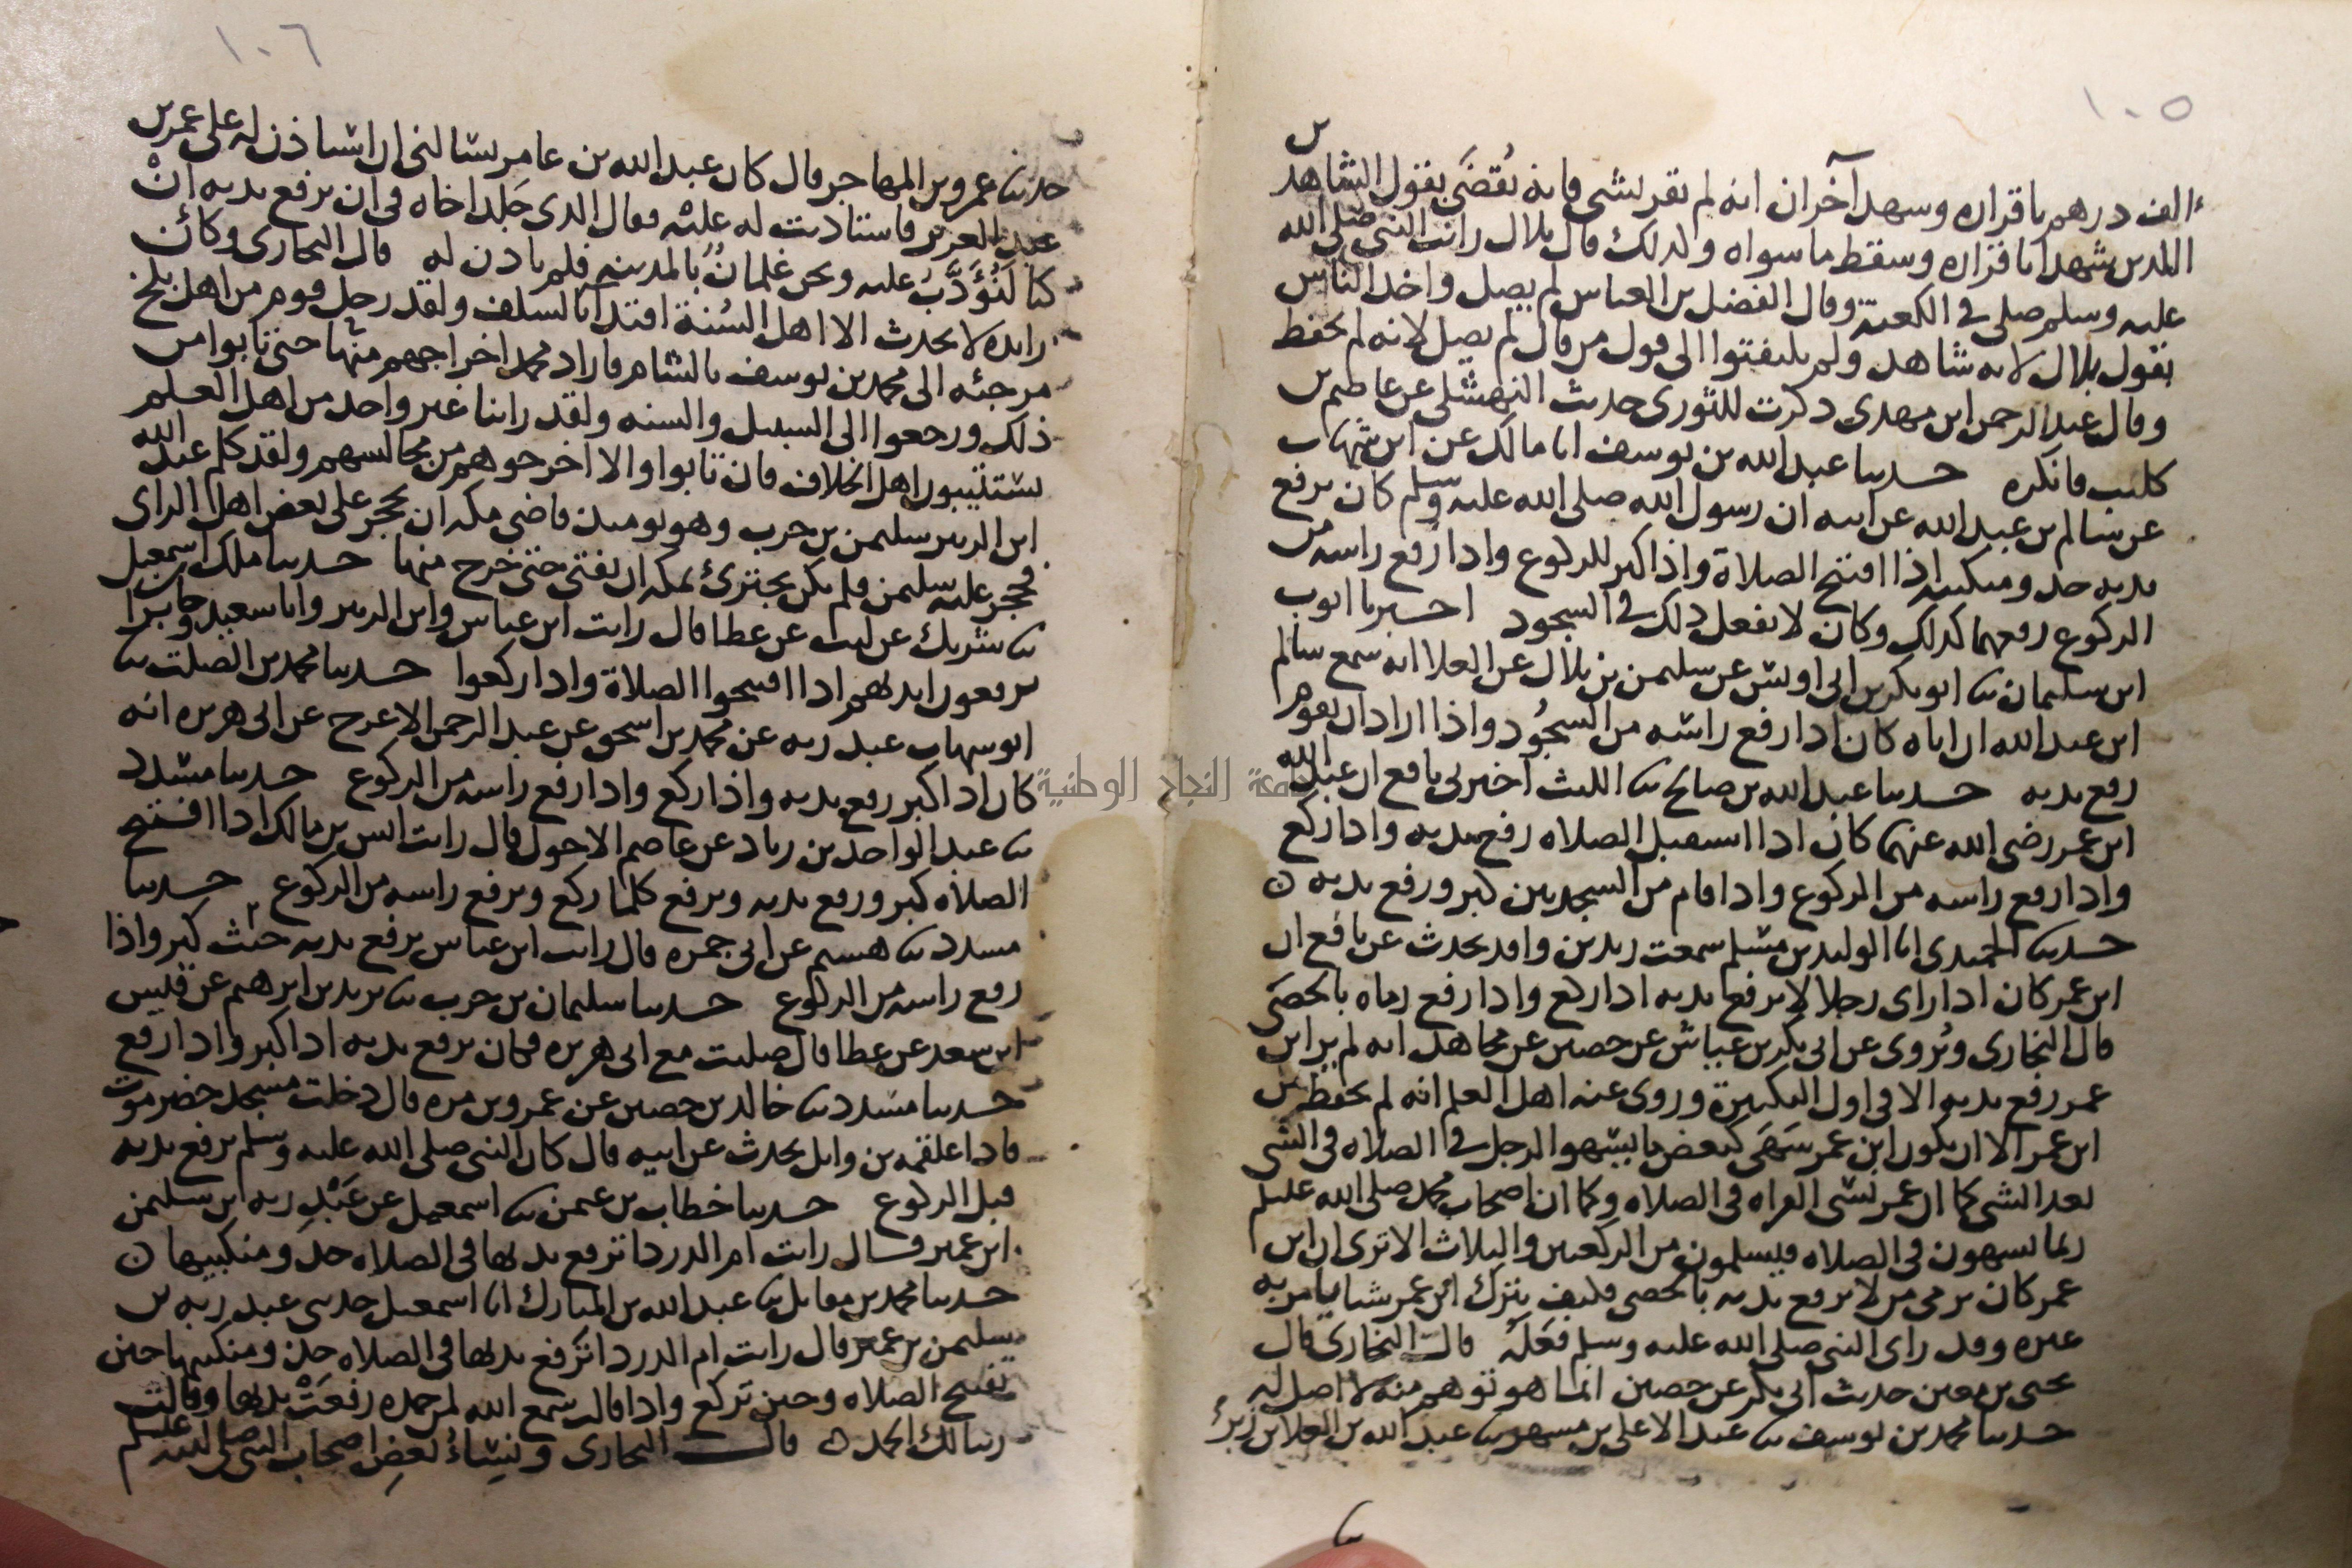 ١٠٥
الف درهم باقراره وشهد آخران انه لم يقر بشي فانه يُقضَى بقول الشاهد
الذين شهدا باقراره وسقط ما سواه وكذلك قال بلال رايت النبي صلى الله
عليه وسلم صلى في الكعبة وقال الفضل بن العباس لم يصل واخذ الناس
بقول بلال لانه شاهد ولم يلتفتوا الى قول من قال لم يصل لانه لم يحفظ
وقال عبد الرحمن ابن مهدي ذكرت للثوري حديث النهشلي عن عاصم بن
كليب فانكره حدثنا عبد الله بن يوسف انا مالك عن ابن شهاب
عن سالم بن عبد الله عن ابيه ان رسول الله صلى الله عليه وسلم كان يرفع
يديه حذو منكبيه اذا افتتح الصلاة واذا كبر للركوع واذا رفع راسه من
الركوع رفعهما كذلك وكان لا يفعل ذلك في السجود اخبرنا ايوب
ابن سليمان ثنا ابو بكر بن ابي اويس عن سليمن بن بلال عن العلا انه سمع سالم
ابن عبد الله ان اباه كان اذا رفع راسه من السجُود واذا اراد ان يقوم
رفع يديه حدثنا عبد الله بن صالح ثنا الليث اخبرني نافع ان عبد الله
ابن عمر رضي الله عنهما كان اذا استقبل الصلاه رفع يديه واذا ركع
واذا رفع راسه من الركوع واذا قام من السجدتين كبر ورفع يديه ن
حدثنا الحميدي انا الوليد بن مسلم سمعت زيد بن واقد يحدث عن نافع ان
ابن عمر كان اذا راى رجلا لا يرفع يديه اذا ركع واذا رفع رماه بالحصَى
قال البخاري ويُروى عن ابي بكر بن عياش عن حصين عن مجاهد انه لم ير ابن
عمر رفع يديه الا في اول التكبيرة وروى عنه اهل العلم انه لم يحفظ من
ابن عمر الا ان يكون ابن عمر سَهَى كبعض ما يسهوا الرجل في الصلاه في الشي
بعد الشي كما ان عمر نسي القراه في الصلاه وكما ان اصحاب محمد صلى الله عليه وسلم
ربما يسهون في الصلاه فيسلمون من الركعتين والثلاث الا ترى ان ابن
عمر كان يرمي من لا يرفع يديه بالحصى فكيف يترك ابن عمر شيا يامر به
غيره وقد راى النبي صلى الله عليه وسلم فَعَلَهُ قال البخاري قال
يحيى بن معين حديث ابي بكر عن حصين انما هو توهم منه لا اصل له
حدثنا محمد بن يوسف ثنا عبد الاعلى بن مسهر ثنا عبد الله بن العلا بن زبر
ثنا
١٠٦
حدثنا عمرو بن المهاجر قال كان عبد الله بن عامر يسالني ان استاذن له على عمر بن
عبد العزيز فاستاذنت له عليْه فقال الذي جَلد اخاه في ان يرفع يديه انْ
كنا لَنُؤَدَّبُ عليه ونحن غلمانٌ بالمدينه فلم ياذن له قال البخاري وكانَ
زايده لا يحدث الا اهل السُنة اقتدا بالسلف ولقد رحل قوم من اهل بلخ
مرجئه الى محمد بن يوسف بالشام فاراد محمد اخراجهم منها حتى تابوا من
ذلك ورجعوا الى السبيل والسنه ولقد راينا غير واحد من اهل العلم
يستتيبون اهل الخلاف فان تابوا والا اخرجوهم من مجالسهم ولقد كلم عبد الله
ابن الزبير سليمن بن حرب وهو يوميذ قاضي مكه ان يحجر على بعض اهل الراى
فحجر عليه سليمن فلم يكن يجترئ بمكه ان يفتي حتى خرج منها حدثنا ملك بن اسمعيل
ثنا شريك عن ليث عن عطا قال رايت ابن عباس وابن الزبير وابا سعيد وجابرا
يرفعون ايديهم اذا افتتحوا الصلاة واذا ركعوا حدثنا محمد بن الصلت ثنا
ابو شهاب عبد ربه عن محمد بن اسحق عن عبد الرحمن الاعرج عن ابي هريره انه
كان اذا كبر رفع يديه واذا ركع واذا رفع راسه من الركوع حدثنا مسدد
ثنا عبد الواحد بن زياد عن عاصم الاحول قال رايت انس بن مالك اذا افتتح
الصلاه كبر ورفع يديه ويرفع كلما ركع ويرفع راسه من الركوع حدثنا
مسدد ثنا هشيم عن ابي جمره قال رايت ابن عباس يرفع يديه حيث كبر واذا
رفع راسه من الركوع حدثنا سليمان بن حرب ثنا يزيد بن ابرهيم عن قيس
ابن سعد عن عطا قال صليت مع ابي هريره فكان يرفع يديه اذا كبر واذا رفع
حدثنا مسدد ثنا خالد بن حصين عن عمرو بن مره قال دخلت مسجد حضرموت
فاذا علقمه بن وايل يحدث عن ابيه قال كان النبي صلى الله عليه وسلم يرفع يديه
قبل الركوع حدثنا خطاب بن عثمن ثنا اسمعيل عن عَبْدِ ربه ابن سليمن
ابن عمير قال رايت ام الدردا ترفع يديها في الصلاه حذو منكبيها ن
حدثنا محمد بن مقاتل ثنا عبد الله بن المبارك انا اسمعيل حدثني عبد ربه بن
سليمن بن عمير قال رايت ام الدردا ترفع يديها في الصلاه حذو منكبيها حين
تفتتح الصلاه وحين تركع واذا قالت سمع الله لمن حمده رفعَتْ يديها وقالت
ربنا لك الحمد ن قال البخاري ونِسَاءُ بعضِ اصحاب النبي صلى الله عليه وسلم
جامعة النجاح الوطنية